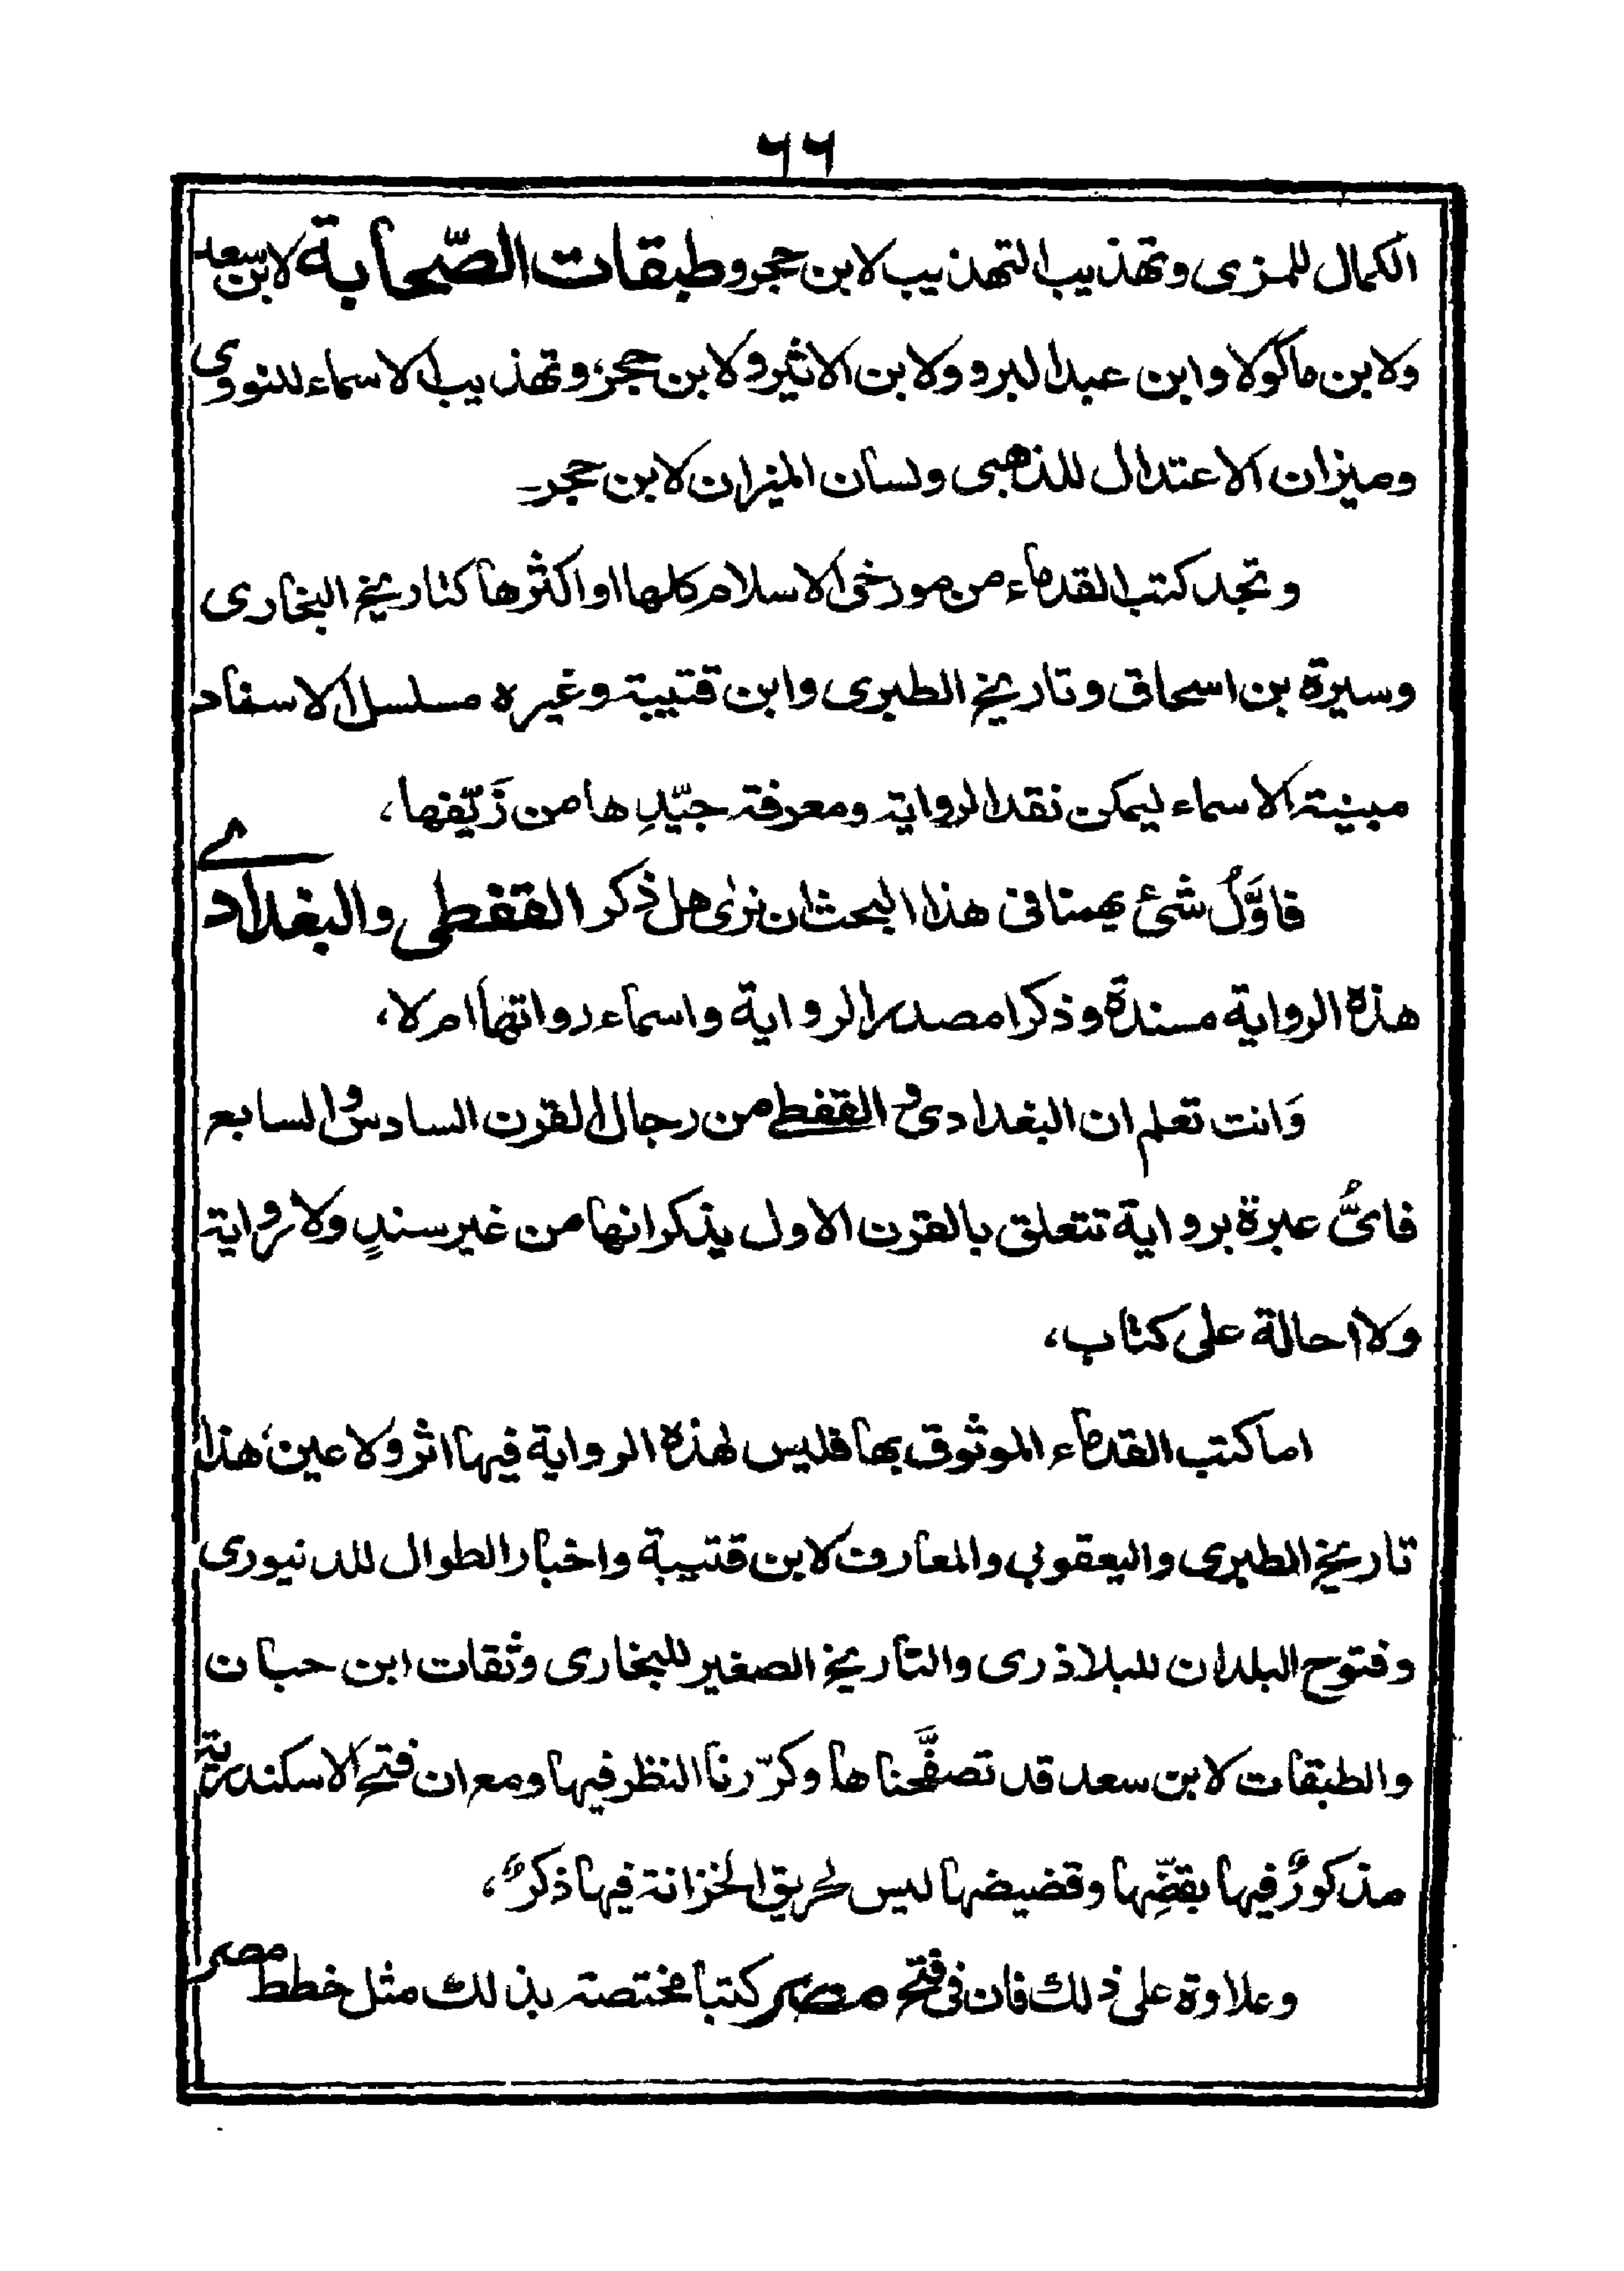 ٦٦
الكمال للمزى وتهذيب التهذيب لابن حجر وطبقات الصّحابة لابن سعد
ولابن ماكولا وابن عبد البر وولابن الاثير ولابن حجر، وتهذيب الاسماء للنووى
وميزان الاعتدال للذهبى ولسان الميزان لابن حجر۔
وتجد كتب القدماء من مورخى الاسلام كلها او اكثرها كتاريخ البخارى
وسيرة بن اسحاق وتاريخ الطبرى وابن قتيبة وغيره مسلسل الاسفاد
مبينة الاسماء ليمكن نقد الرواية ومعرفة جيّدِها من زَيّفها،
فاوَّلُ شئ يهمنا فى هذا البحث ان نرى هل ذكر القفطى والبغدادے
هذه الرواية مسندة وذكرا مصدر الرواية واسماء رواتها ام لا،
وَانت تعلم ان البغدادى والقفطے من رجال القرن السادس والسابع
فاىُّ عبرة برواية تتعلق بالقرن الاول يذكرانها من غير سندٍ ولا رواية
ولا احالة على كتاب،
اما كتب القدماء الموثوق بها فليس لهذه الرواية فيها اثر ولا عين، هذا
تاريخ الطبرى واليعقوبى والمعارف لابن قتيبة واخبار الطوال للدنيورى
وفتوح البلدان للبلاذرى والتاريخ الصغير للبخارى وثقات ابن حبان
والطبقات لابن سعد قد تصفَّحناها وكرّرنا النظر فيها ومع ان فتح الاسكندرية
مذكورٌ فيها بقضِّها وقضيضها ليس لحريق الخزانة فيها ذكرٌ،
وعلاوة على ذلك فان فى فتح مصر كتبا مختصة بذلك مثل خطط مصر